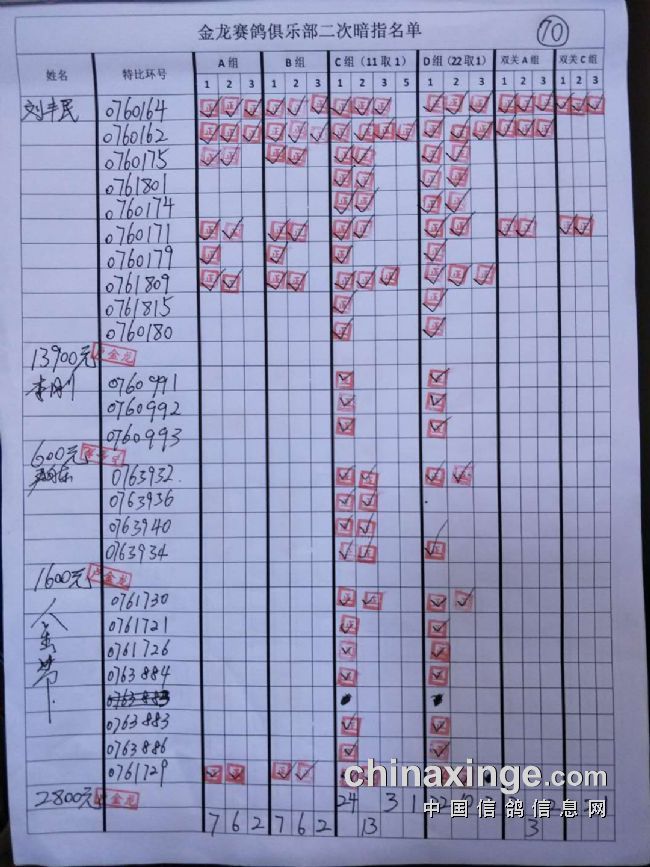 金龙赛鸽俱乐部二次暗指名单 70
姓名 特比环号 A组 B组 C组(11取1) D组(22取1) 双关A组 双关C组
1 2 3 1 2 3 1 2 3 5 1 2 3 1 2 3 1 2 3
刘丰民 0760164
0760162
0760175
0761801
0760174
0760171
0760179
0761809
0761815
0760180
13900元 金龙
李刚 0760991
0760992
0760993
600元
0763932
0763936
0763940
0763934
1600元 金龙
0761730
0761721
0761726
0763884
0763883
0763886
0761729
2800元 金龙 24 3 1
7 6 2 7 6 2 13 3
chinaxinge.com
中国信鸽信息网